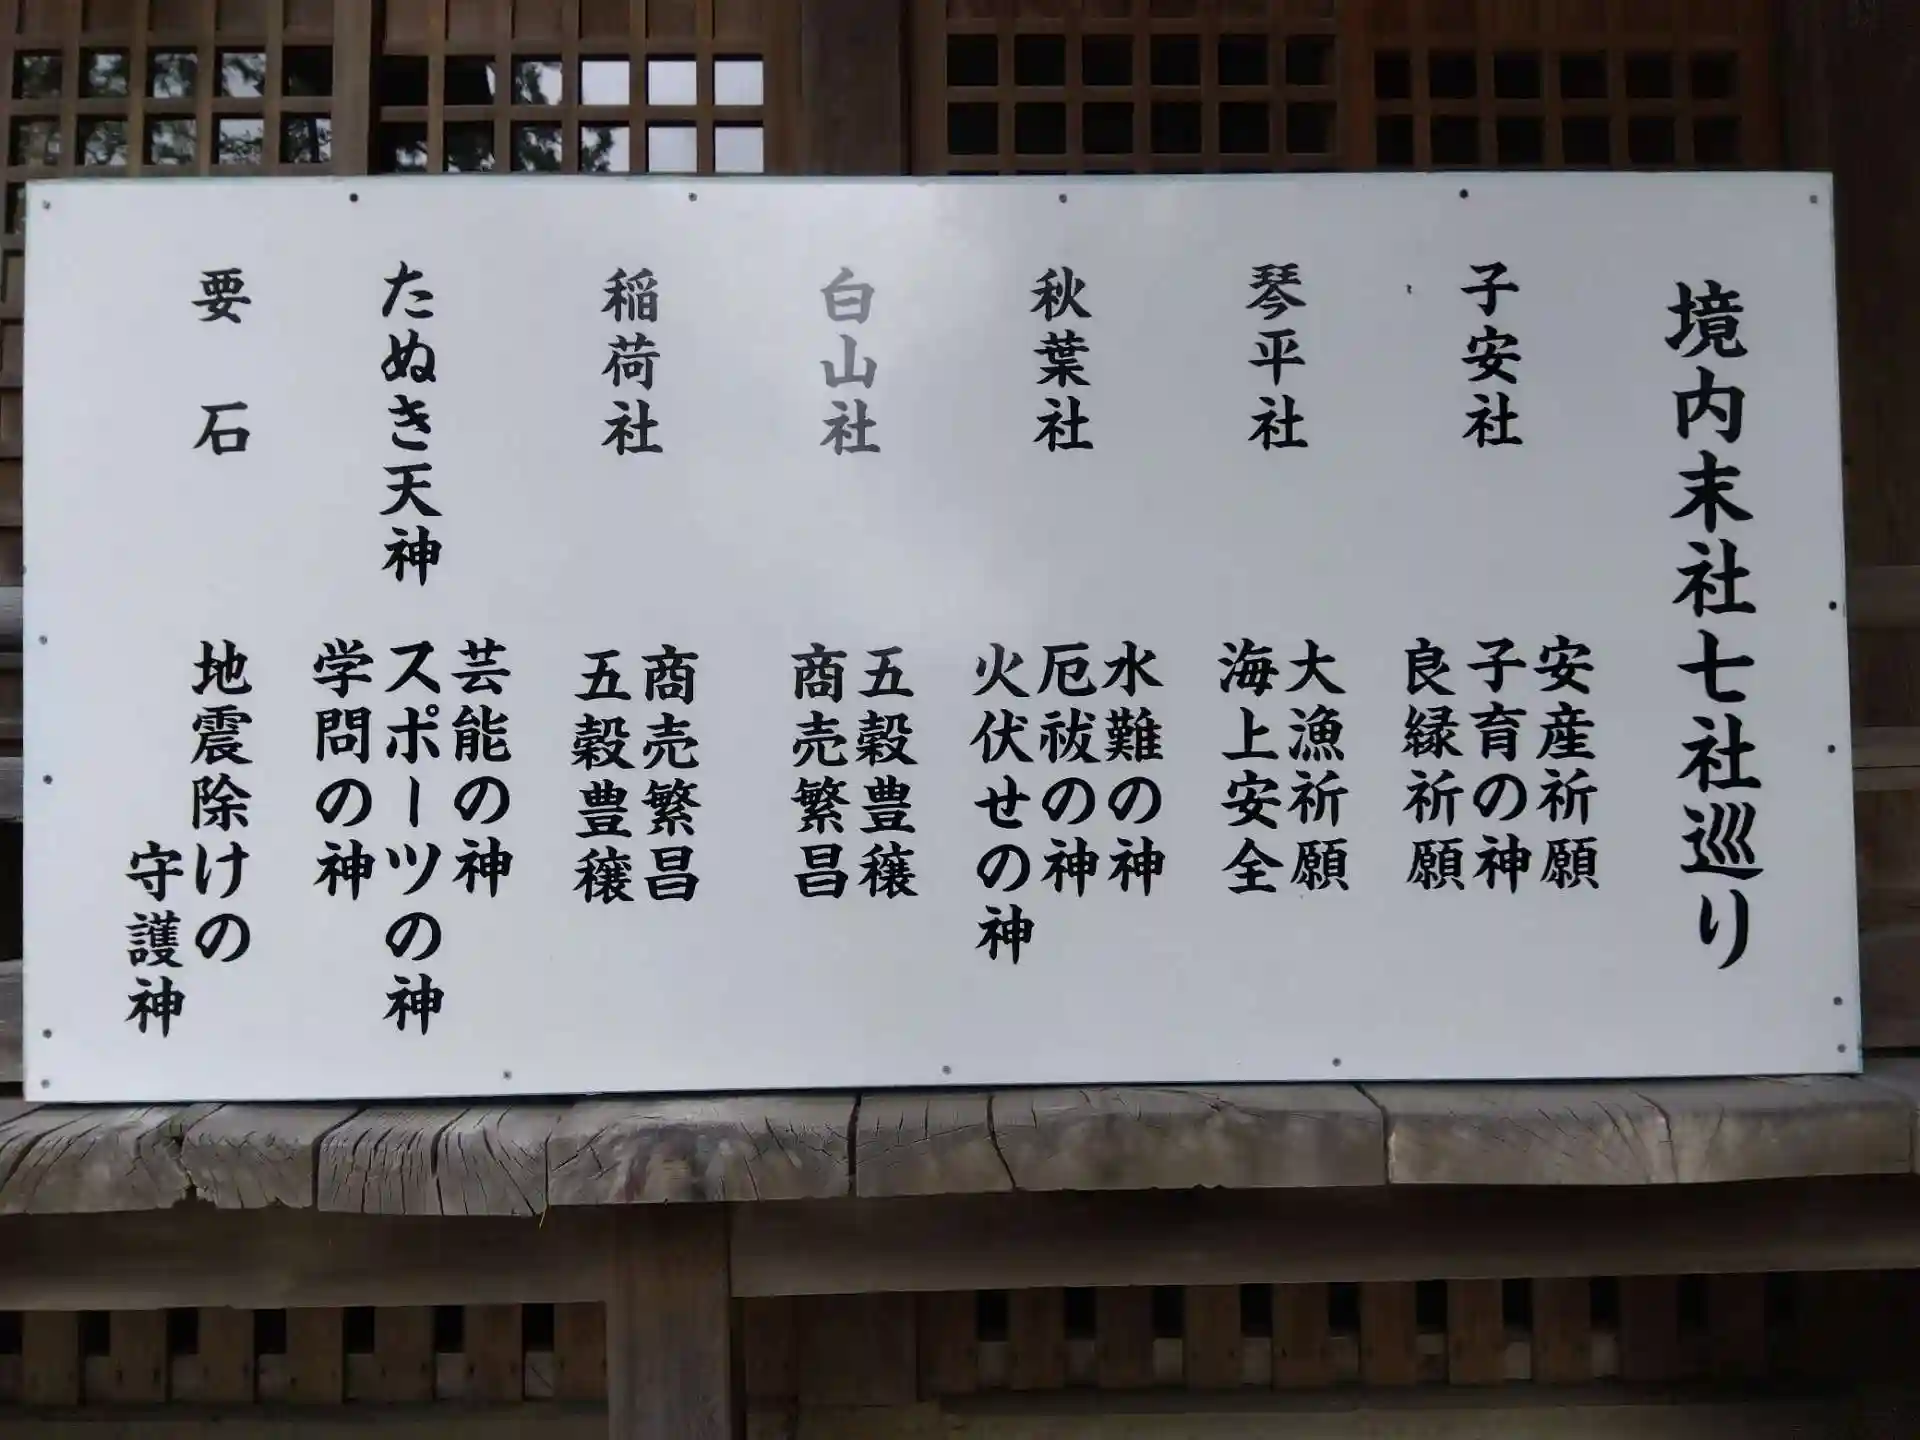 境内末社七社巡り
子安社
安産祈願
子育の神
良縁祈願
琴平社
大漁祈願
海上安全
秋葉社
水難の神
厄祓の神
火伏せの神
白山社
五穀豊穣
商売繁昌
稲荷社
商売繁昌
五穀豊穣
たぬき天神
芸能の神
スポーツの神
学問の神
要石
地震除けの
守護神